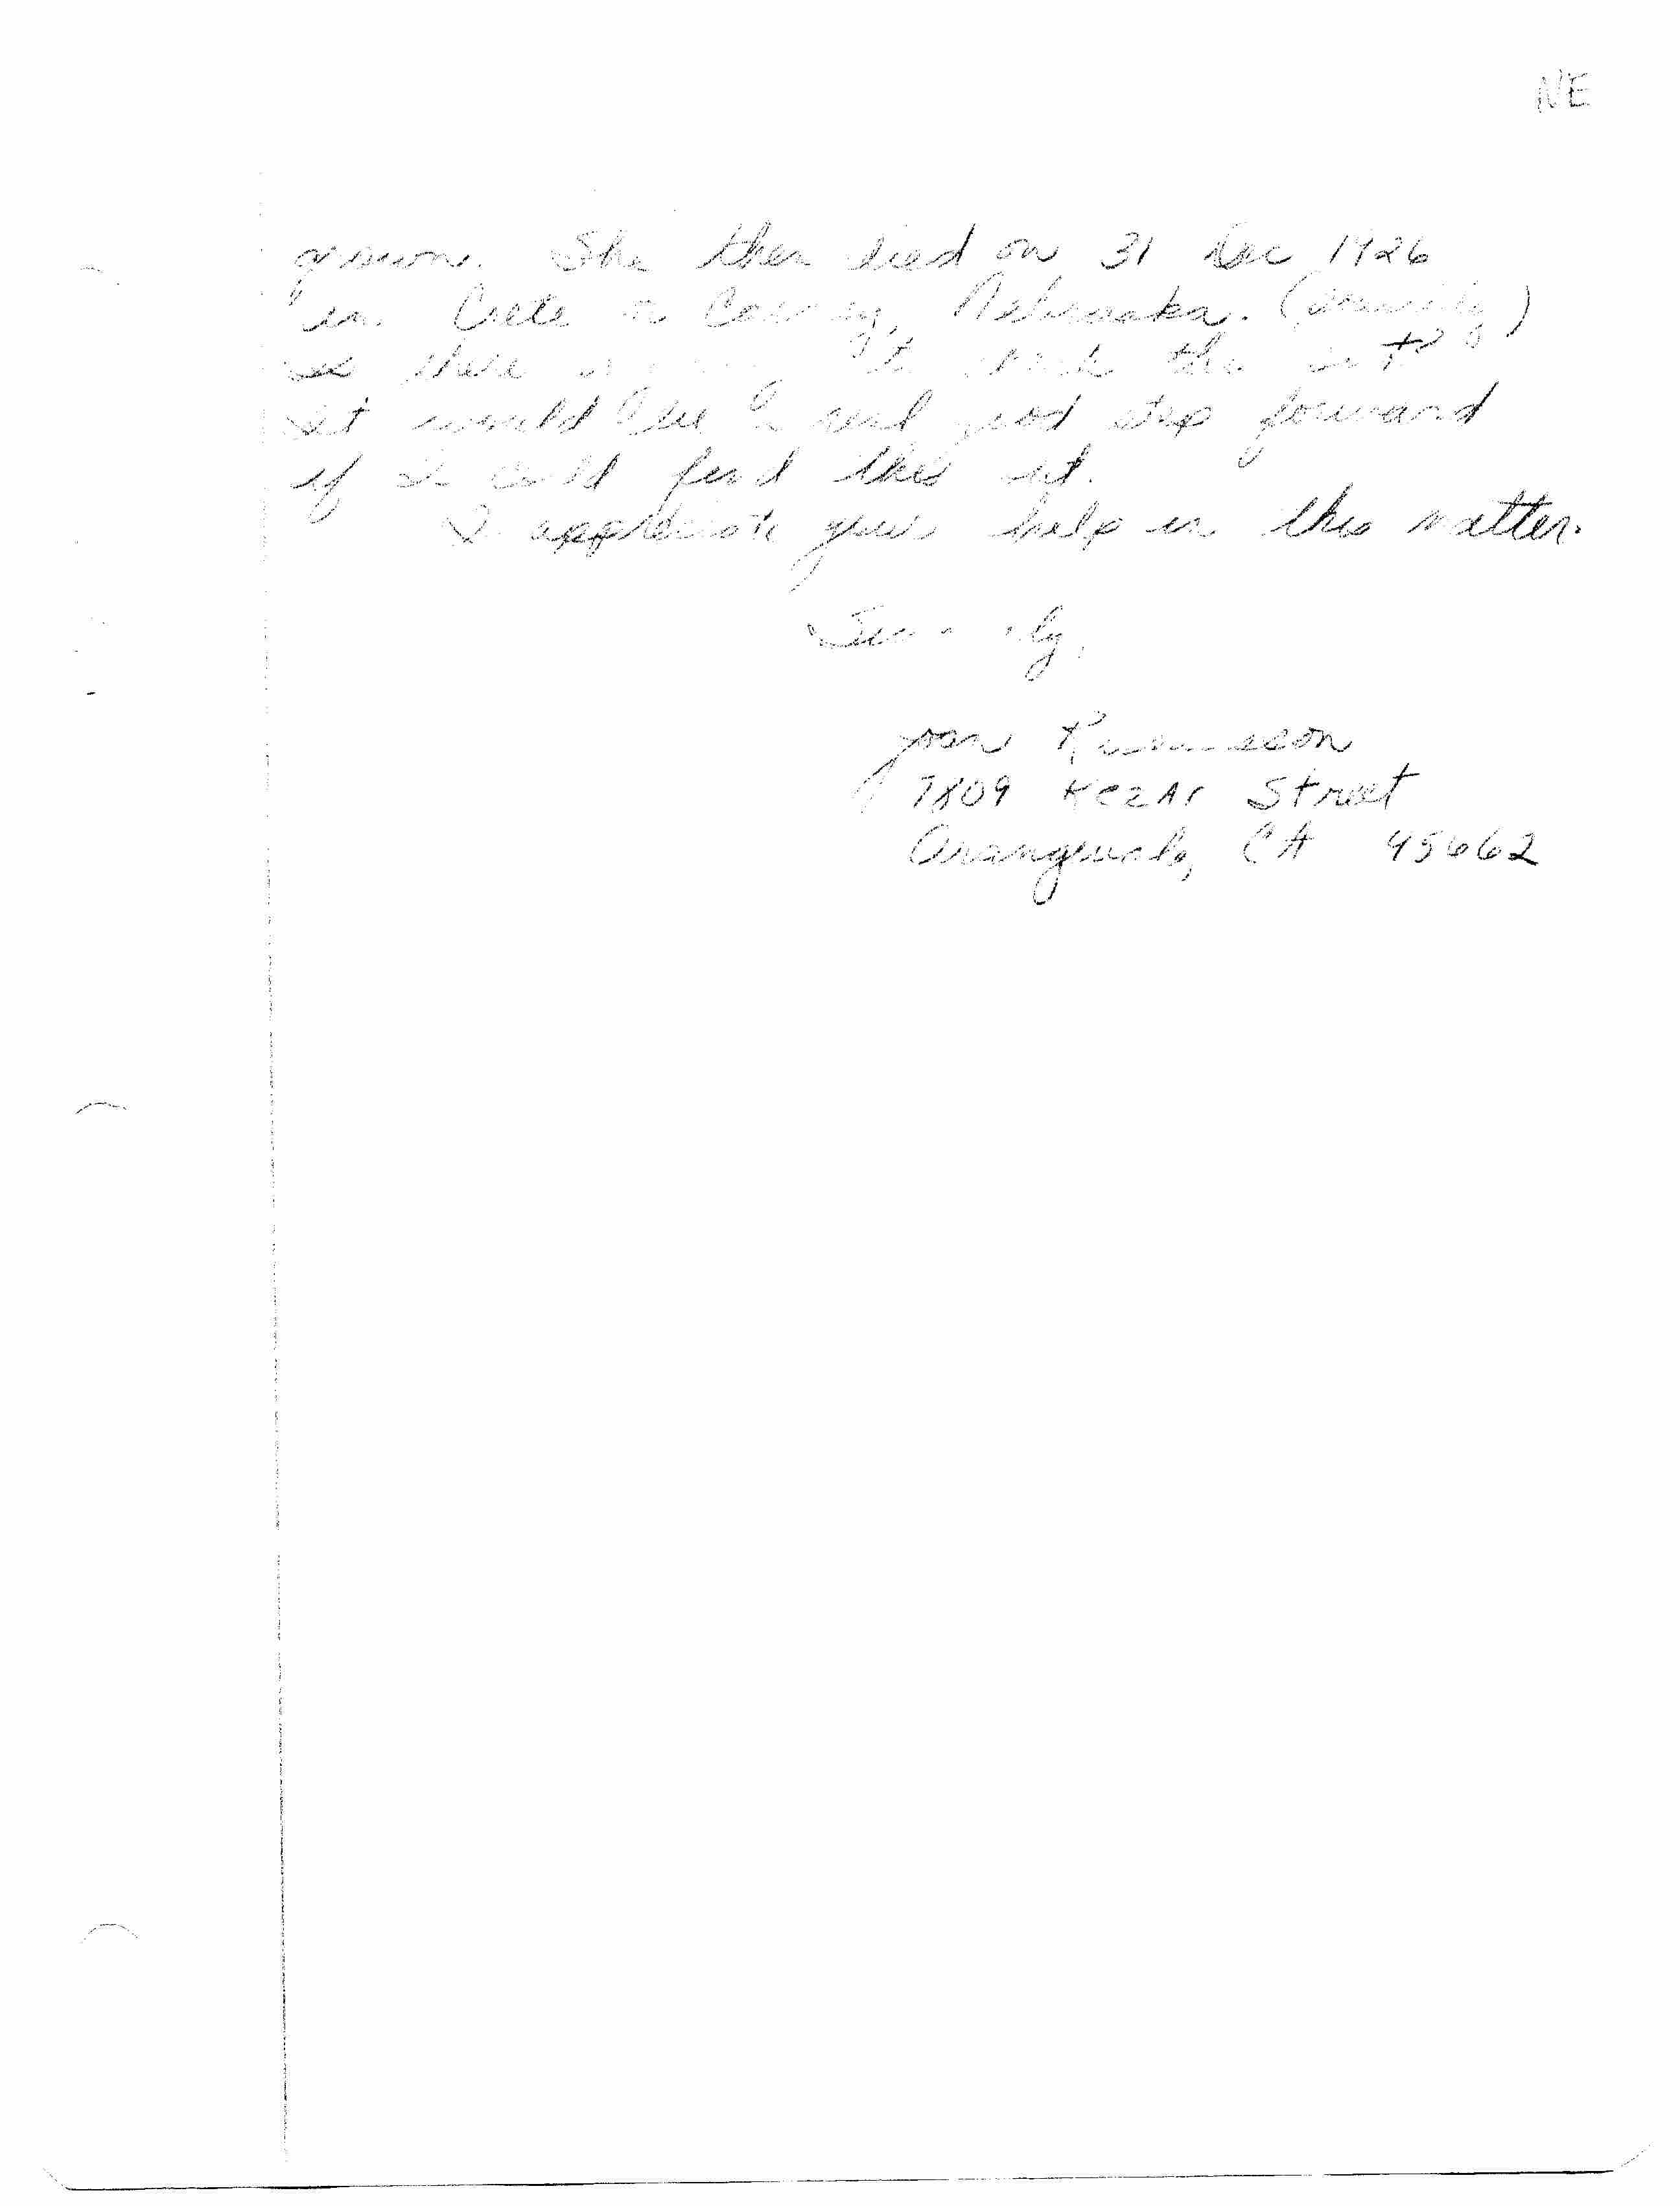 NE
grown. She then died on 31 Dec 1926
in Crete or County, Nebraska. ( )
Is there to check this out?
It would be a real good step forward
if I could find this out.
I appreciate your help in this matter.
Sincerely,
Joan
7809 Kezar Street
Orangevale, CA 95662